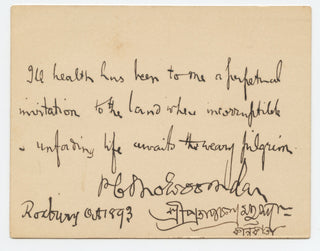 Ill health has been to me a perpetual
invitation to the land where incorruptible
& unfading life awaits the weary pilgrim.
P C Mozoomdar
Roxbury Oct 1893
শ্রীপ্রতাপচন্দ্র মজুমদার